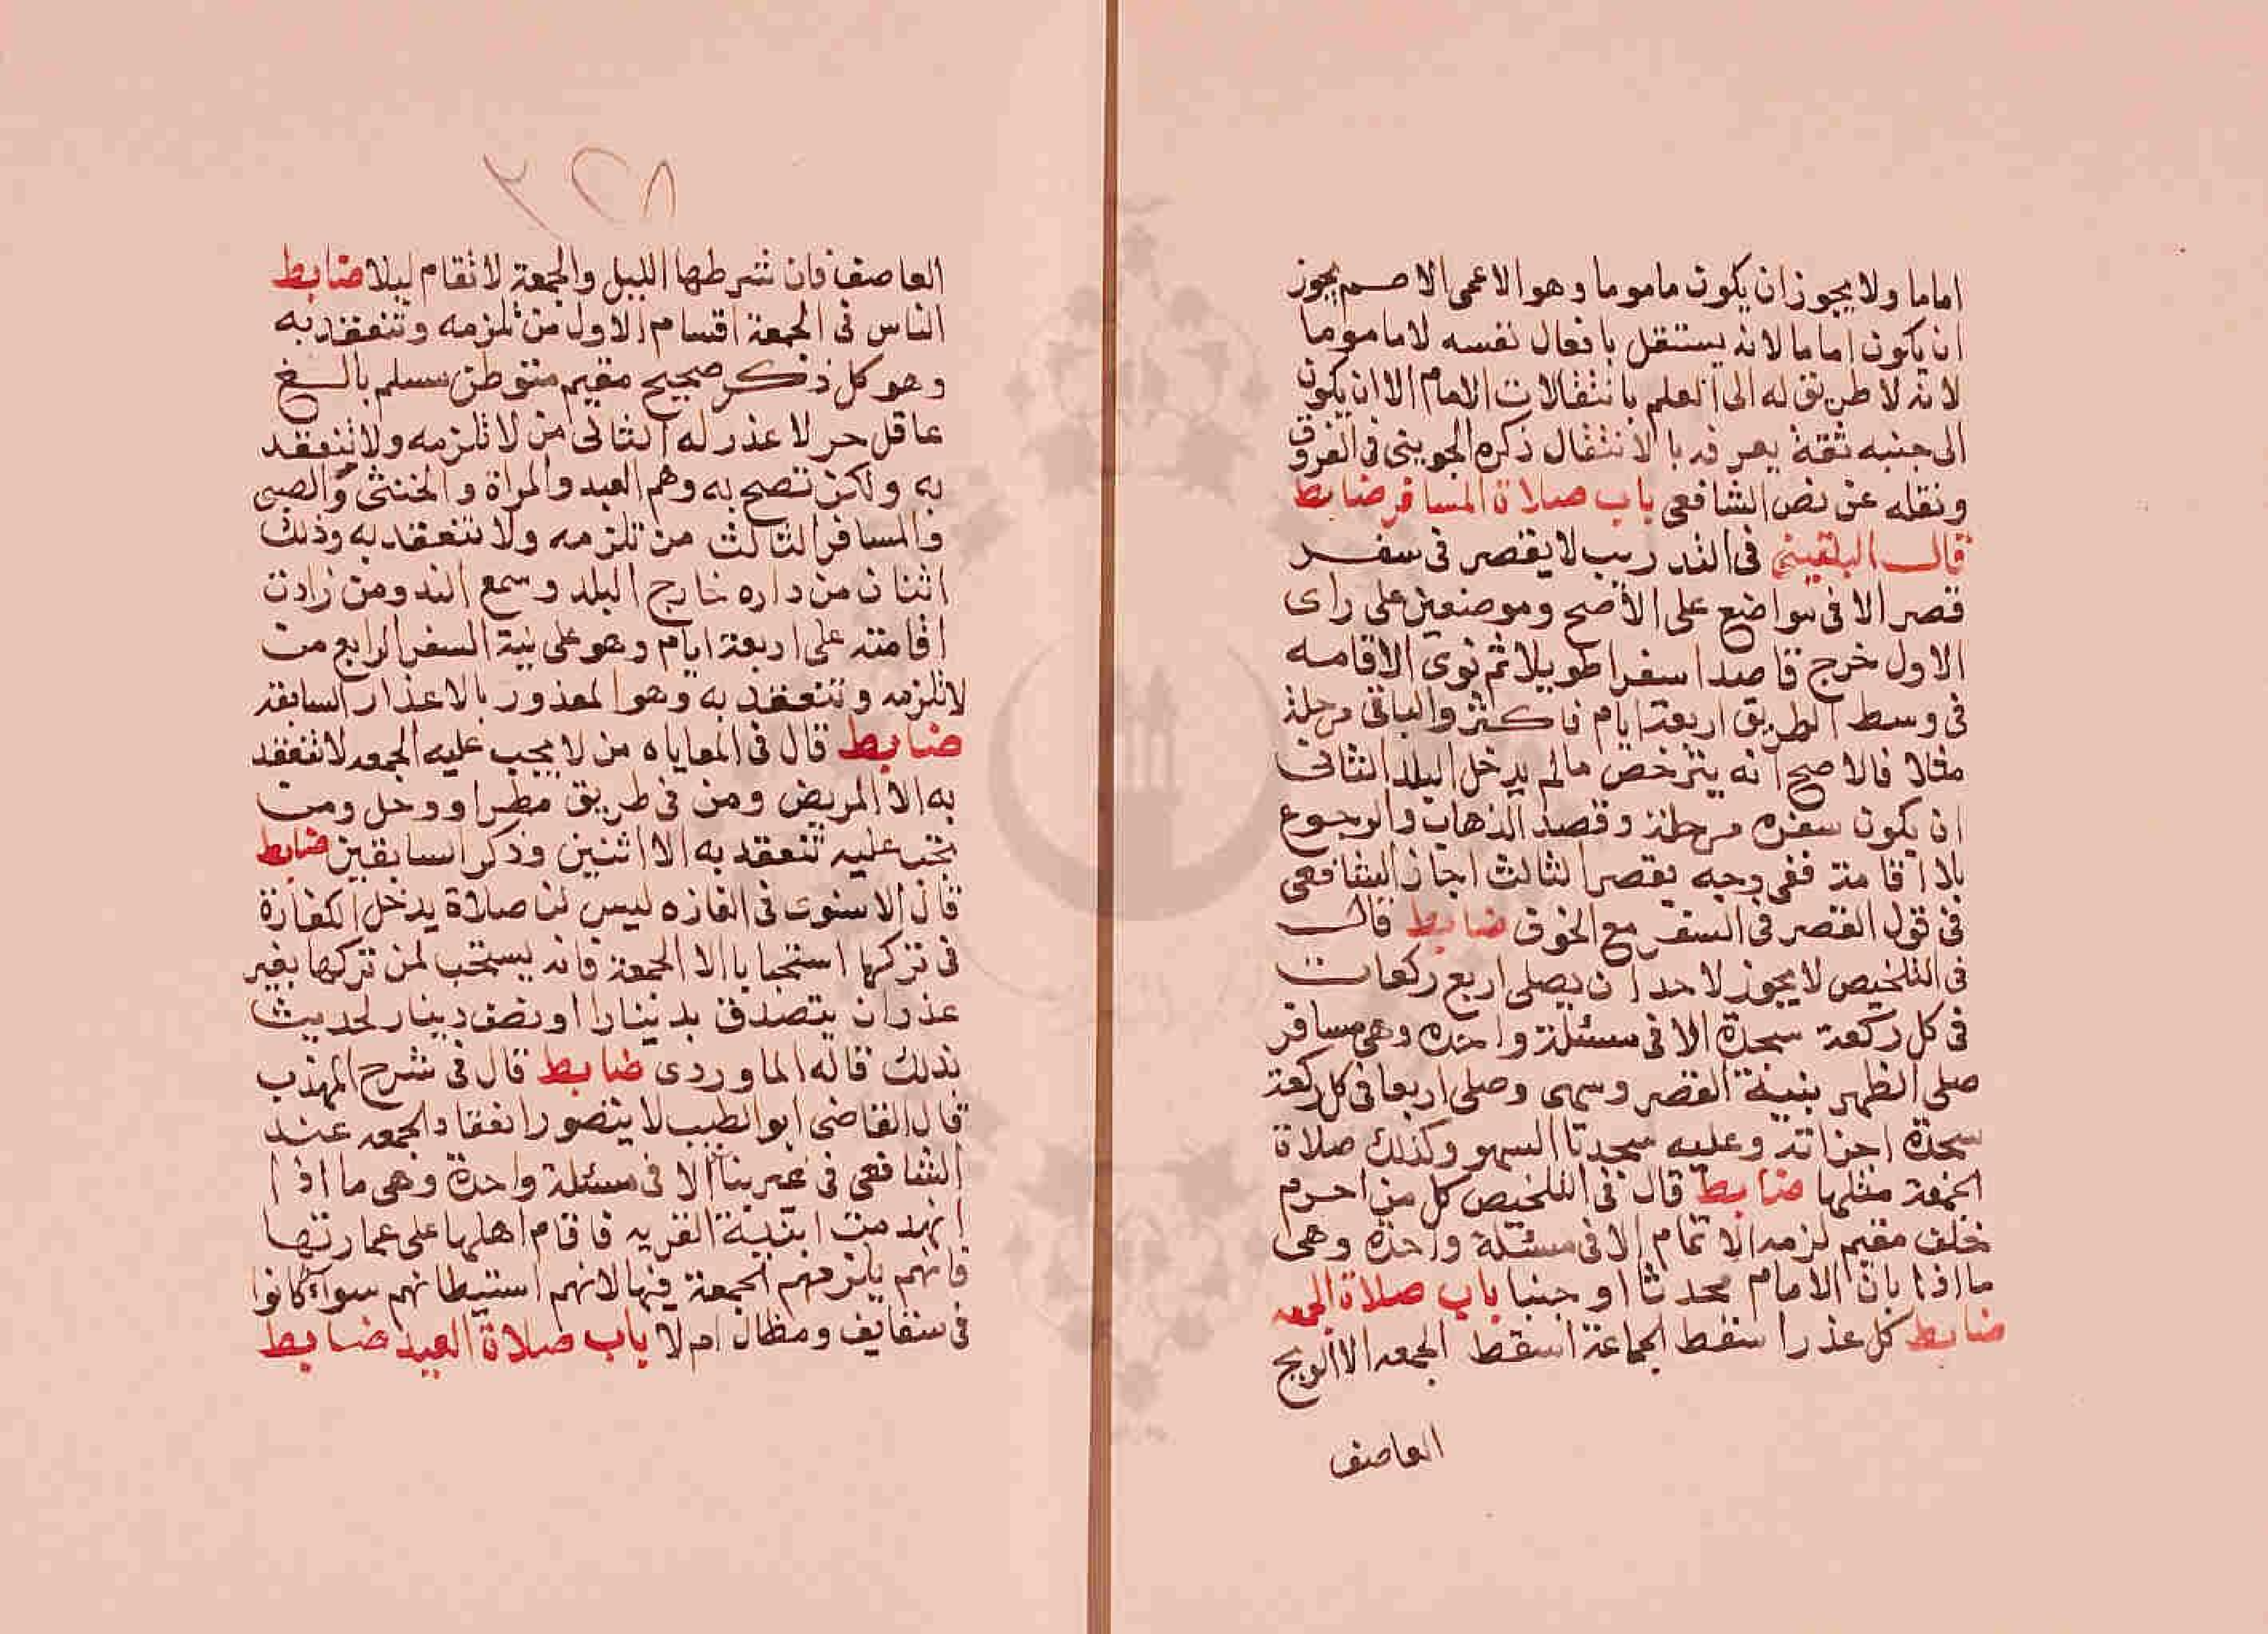 اماما ولا يجوز ان يكون ماموما وهو الاعمى الاصم يجوز
ان يكون اماما لانه يستقل بافعال نفسه لا ماموما
لانه لا طريق له الى العلم بانتقالات الامام الا ان يكون
الى جنبه ثقة يعرفه بالانتقال ذكره الجويني فى الفروق
ونقله عن نص الشافعى باب صلاة المسافر ضابط
قال البلقينى فى التدريب لا يقصر فى سفر
قصر الا فى مواضع على الاصح وموضعين على راى
الاول خرج قاصدا سفرا طويلا ثم نوى الاقامه
فى وسط الطريق اربعة ايام فاكثر والباقى مرحلة
مثلا فالاصح انه يترخص مالم يدخل البلد الثانى
ان يكون سفره مرحلة وقصد الذهاب والرجوع
بلا اقامة ففى وجه يقصر الثالث اجاز الشافعى
فى قول القصر فى السفر مع الخوف ضابط قال
فى التلخيص لا يجوز لاحد ان يصلى اربع ركعات
فى كل ركعة سجدة الا فى مسئلة واحده وهى مسافر
صلى الظهر بنية القصر وسهى وصلى اربعا فى كل ركعة
سجدة اجزاته وعليه سجدتا السهو وكذلك صلاة
الجمعة مثلها ضابط قال فى التلخيص كل من احرم
خلف مقيم لزمه الاتمام الا فى مسئلة واحدة وهى
ما اذا بان الامام محدثا او جنبا باب صلاة الجمعه
ضابط كل عذر اسقط الجماعة اسقط الجمعه الا الريح
العاصف
٢٣٨
العاصف فان شرطها الليل والجمعة لا تقام ليلا ضابط
الناس فى الجمعة اقسام الاول من تلزمه وتنعقد به
وهو كل ذكر صحيح مقيم متوطن مسلم بالغ
عاقل حر لا عذر له الثانى من لا تلزمه ولا تنعقد
به ولكن تصح به وهم العبد والمراة والخنثى والصبى
والمسافر الثالث من تلزمه ولا تنعقد به وذلك
اثنان من داره خارج البلد وسمع الندا ومن زادت
اقامته على اربعة ايام وهو على نية السفر الرابع من
لا تلزمه وتنعقد به وهو المعذور بالاعذار السابقة
ضابط قال فى المعاياه من لا يجب عليه الجمعه لا تنعقد
به الا المريض ومن فى طريق مطر او وحل ومن
تجب عليه تنعقد به الا اثنين وذكر السابقين ضابط
قال الاسنوى فى الغازه ليس لنا صلاة يدخل الكفارة
فى تركها استحبابا الا الجمعة فانه يستحب لمن تركها بغير
عذر ان يتصدق بدينار او نصف دينار لحديث
بذلك قاله الماوردى ضابط قال فى شرح المهذب
قال القاضى ابو الطيب لا يتصور انعقاد الجمعه عند
الشافعى فى غير بنا الا فى مسئلة واحدة وهى ما اذا
انهدمت ابنية القريه فاقام اهلها على عمارتها
فانهم يلزمهم الجمعة فيها لانهم استيطانهم سواء كانوا
فى سقايف ومظال ام لا باب صلاة العيد ضابط